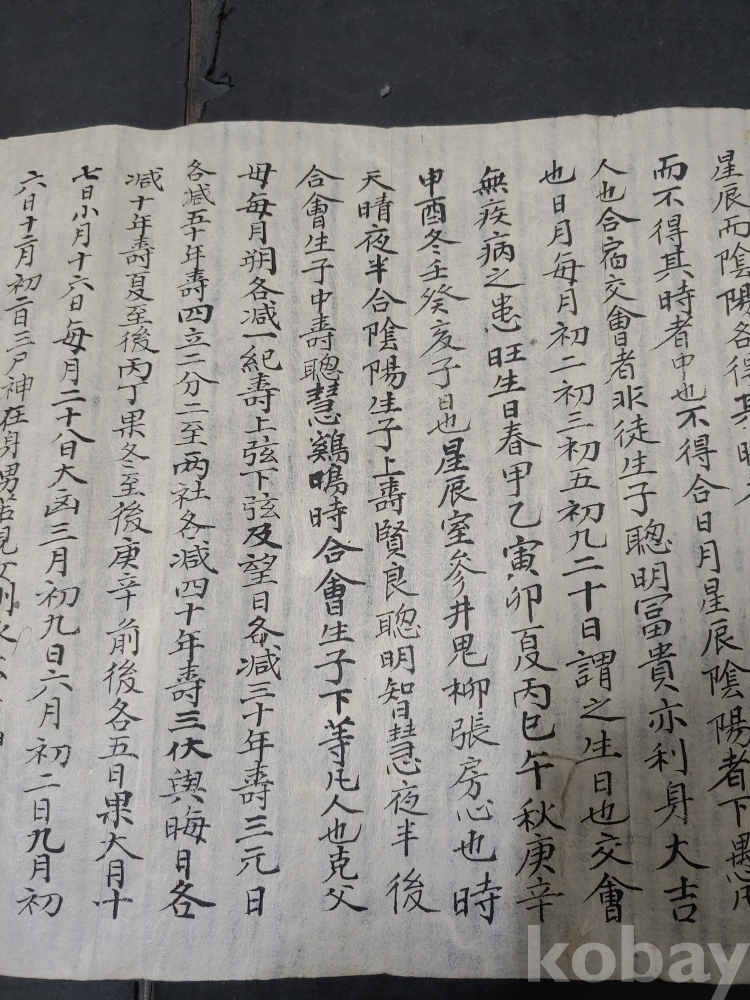 星辰而陰陽各得其時
而不得其時者中也不得合日月星辰陰陽者下愚凡
人也合宿交會者非徒生子聰明冨貴亦利身大吉
也日月每月初二初三初五初九二十日謂之生日也交會
無疾病之患旺生日春甲乙寅卯夏丙巳午秋庚辛
申酉冬壬癸亥子日也星辰室參井鬼柳張房心也時
天晴夜半合陰陽生子上壽賢良聰明智慧夜半後
合會生子中壽聰慧鷄鳴時合會生子下等凡人也克父
母每月朔各减一紀壽上弦下弦及望日各减三十年壽三元日
各减五十年壽四立二分二至两社各减四十年壽三伏與晦日各
减十年壽夏至後丙丁果冬至後庚辛前後各五日果大月十
七日小月十六日每月二十八日大凶三月初九日六月初二日九月初
六日十二月初二日三尸神在身男若見女則
kobay